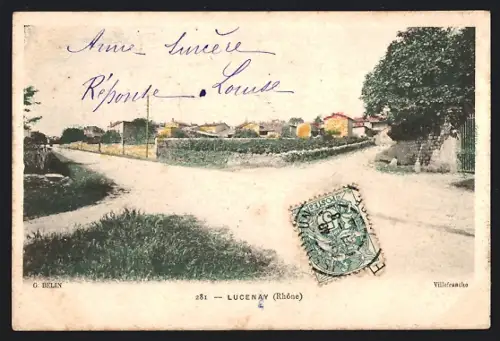 Amie Sincère
Réponse. Louise
G. BELIN
281 — LUCENAY (Rhône)
Villefranche